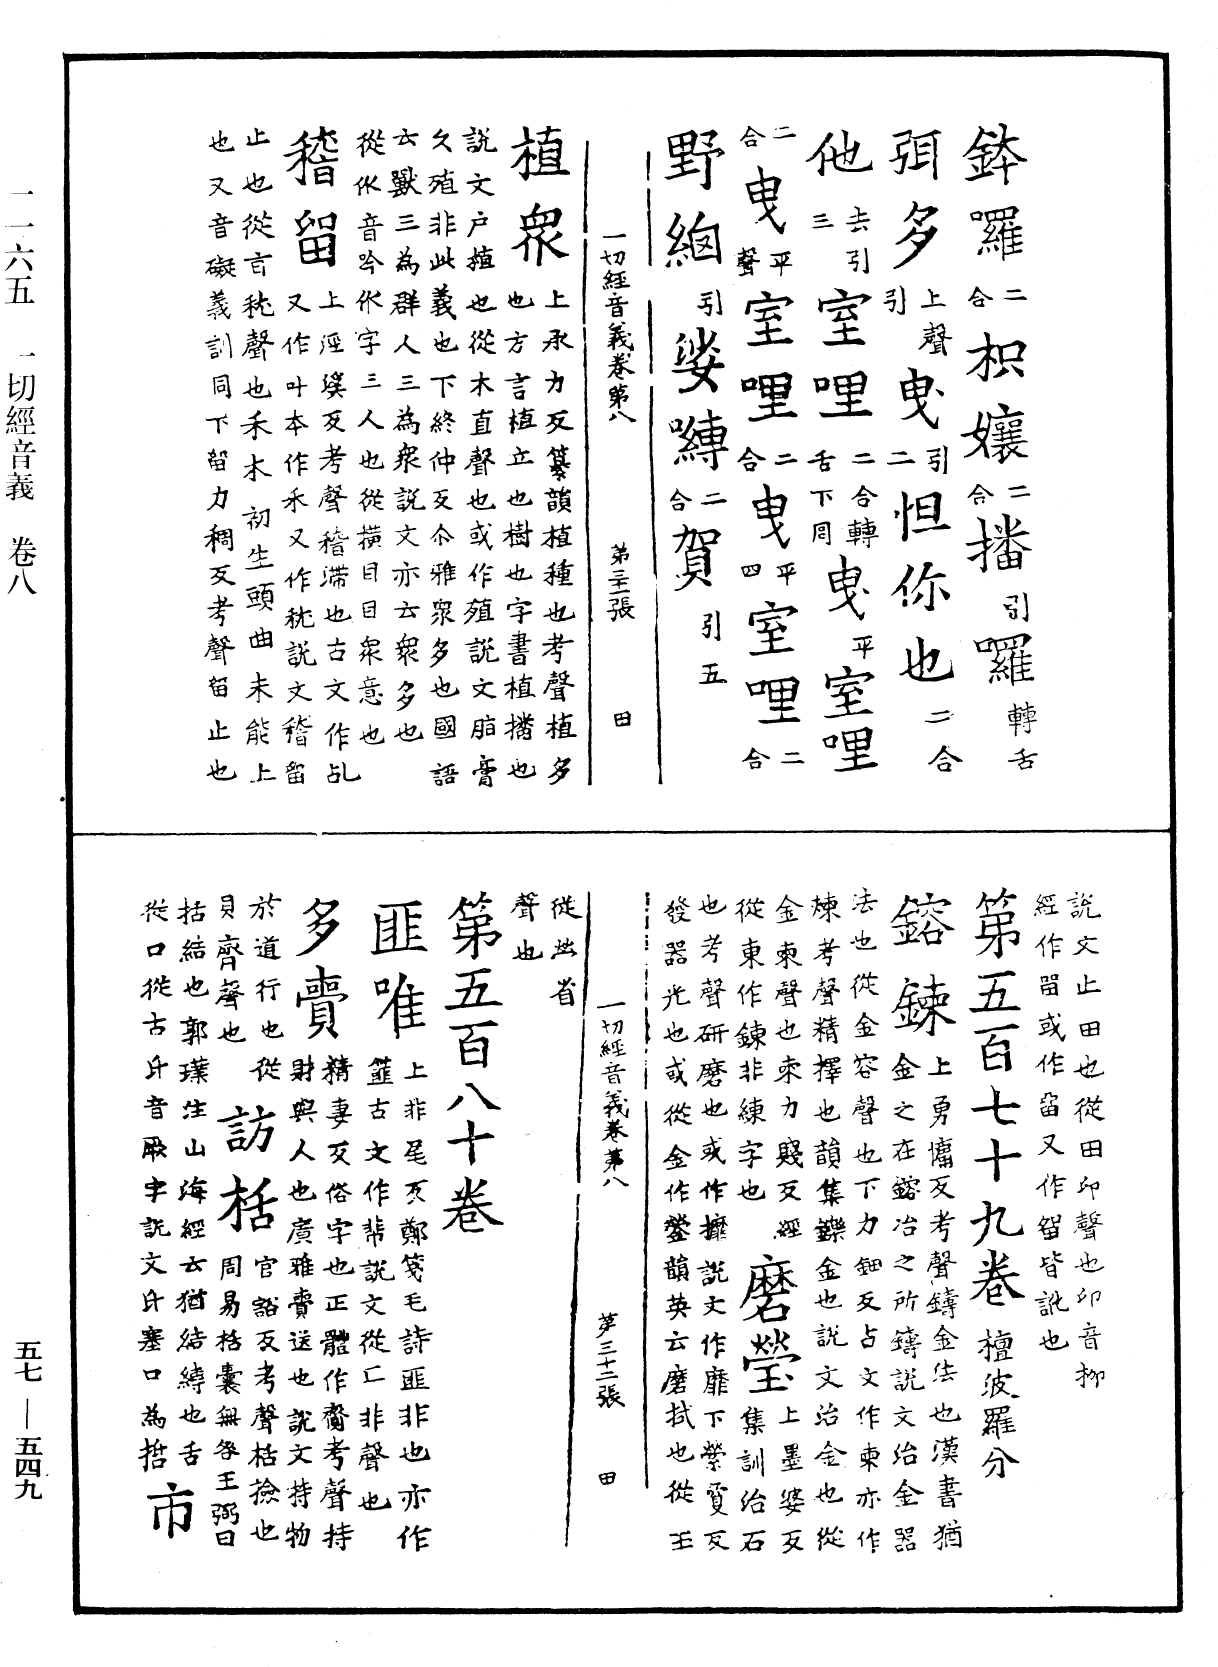 鉢囉二合枳孃二合播引囉轉舌
弭多上聲引曳引二怛你也二合
他去引三室哩二合轉舌下同曳平室哩
二合曳平聲室哩二合曳平四室哩二合
野緰引娑嚩二合賀引五
一切經音義卷第八 第三十一張 田
植衆上承力反纂韻植種也考聲植多
也方言植立也樹也字書植播也
說文户植也從木直聲也或作殖說文脂膏
久殖非此義也下終仲反尒雅衆多也國語
云獸三為群人三為衆說文亦云衆多也
從㐺音吟㐺字三人也從橫目目衆意也
稽留上徑溪反考聲稽滯也古文作乩
又作叶本作禾又作𥝖說文稽留
止也從旨𥝖聲也禾木初生頭曲未能上
也又音礙義訓同下留力稠反考聲留止也
說文止田也從田丣聲也丣音柳
經作㽞或作畱又作留皆訛也
第五百七十九卷 檀波羅分
鎔鍊上勇慵反考聲鑄金法也漢書猶
金之在鎔冶之所鑄說文冶金器
法也從金容聲也下力鈿反占文作柬亦作
煉考聲精擇也韻集鑠金也說文治金也從
金柬聲也柬力賤反經
從東作鍊非練字也 磨瑩上墨婆反
集訓治石
也考聲研磨也或作攠說文作䃺下縈敻反
發器光也或從金作鎣韻英云磨拭也從玉
一切經音義卷第八 第三十二張 田
從𤇾省
聲也
第五百八十卷
匪唯上非尾反鄭箋毛詩匪非也亦作
篚古文作棐說文從匚非聲也
多賷精妻反俗字也正體作齎考聲持
財與人也廣雅賷送也說文持物
於道行也從
貝齊聲也 訪栝官豁反考聲栝撿也
周易栝囊無咎王弼曰
括結也郭璞注山海經云猶結縛也舌
從口從古氏音厥字說文氏塞口為𠯑 市
一一六五 一切經音義 卷八
五七—五四九